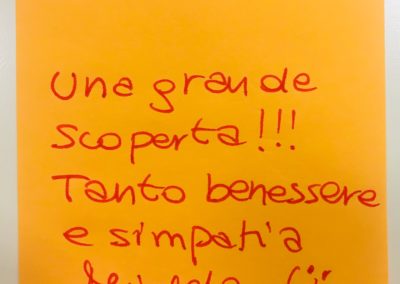 Una grande
scoperta!!!
Tanto benessere
e simpatia